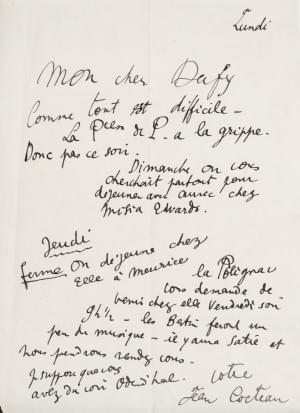 Lundi
Mon cher Dufy
Comme tout est difficile –
La Pcess de P. a la grippe.
Donc pas ce soir.
Dimanche on vous
cherchait partout pour
déjeuner avec chez
Misia Edwards.
Jeudi
ferme On déjeune chez
elle à Meurice
la Polignac
vous demande de
venir chez elle Vendredi soir
9h½ – les Batori feront un
peu de musique – il y aura Satie et
nous prendrons rendez vous.
Je suppose que vous
avez du voir
votre
Jean Cocteau